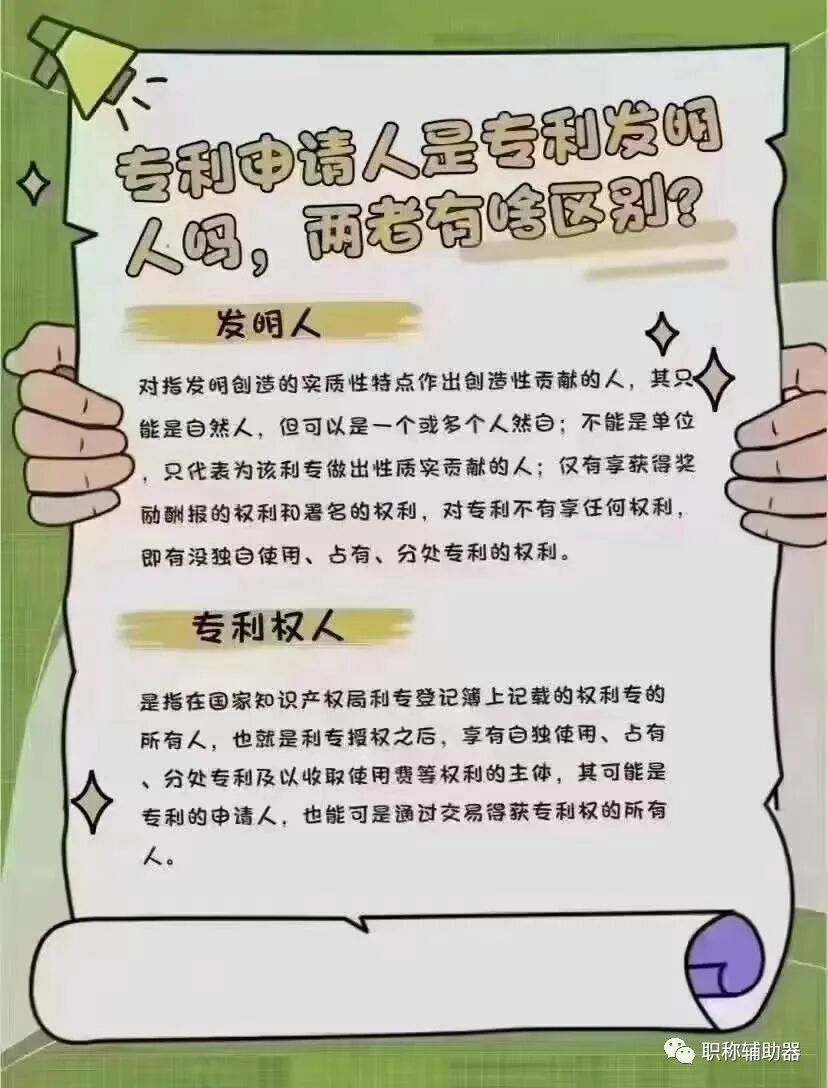 专利申请人是专利发明
人吗，两者有啥区别？
发明人
对指发明创造的实质性特点作出创造性贡献的人，其只
能是自然人，但可以是一个或多个人然自；不能是单位
，只代表为该利专做出性质实贡献的人；仅有享获得奖
励酬报的权利和署名的权利，对专利不有享任何权利，
即有没独自使用、占有、分处专利的权利。
专利权人
是指在国家知识产权局利专登记簿上记载的权利专的
所有人，也就是利专授权之后，享有自独使用、占有
、分处专利及以收取使用费等权利的主体，其可能是
专利的申请人，也能可是通过交易得获专利权的所有
人。
职称辅助器